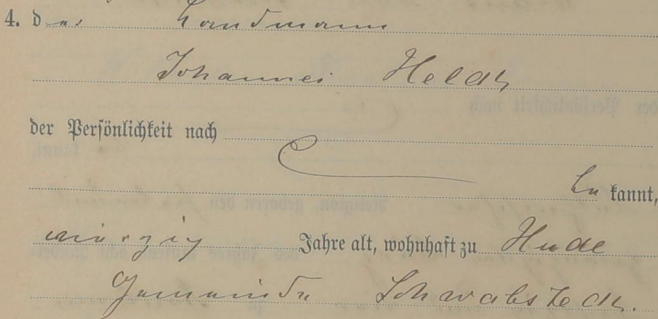 4. der Landmann
Johannes Heldt
der Persönlichkeit nach
be kannt,
vierzig Jahre alt, wohnhaft zu Hude
Gemeinde Schwabstedt.